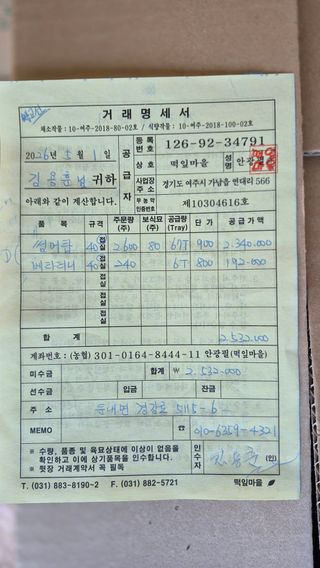 거 래 명 세 서
채소작물 : 10-여주-2018-80-02호 / 식량작물 : 10-여주-2018-100-02호
2026년 5월 1일
김용훈님 귀하
아래와 같이 계산합니다.
공급자
등록번호 126-92-34791
상호 떡잎마을 성명 안광필
사업장주소 경기도 여주시 가남읍 연대리 566
무농약인증번호 제10304616호
품목 규격 주문량(주) 보식묘(주) 공급량(Tray) 단가 공급가액
썸머탑 40 접실 2,600 80 67T 900 2,340,000
40 접실 240 6T 800 192,000
접실
접실
접실
합계 2,532,000
계좌번호 : (농협) 301-0164-8444-11 안광필(떡잎마을)
미수금 합계 ₩ 2,532,000
선수금 입금 잔금
주소 둔내면 경강로 5115-6
MEMO ☎ 010-6359-4321
※ 수량, 품종 및 육묘상태에 이상이 없음을
확인하고 이에 상기품목을 인수합니다.
※ 뒷장 거래계약서 꼭 필독
인수자 김용훈 (인)
T. (031) 883-8190~2 F. (031) 882-5721 떡잎마을